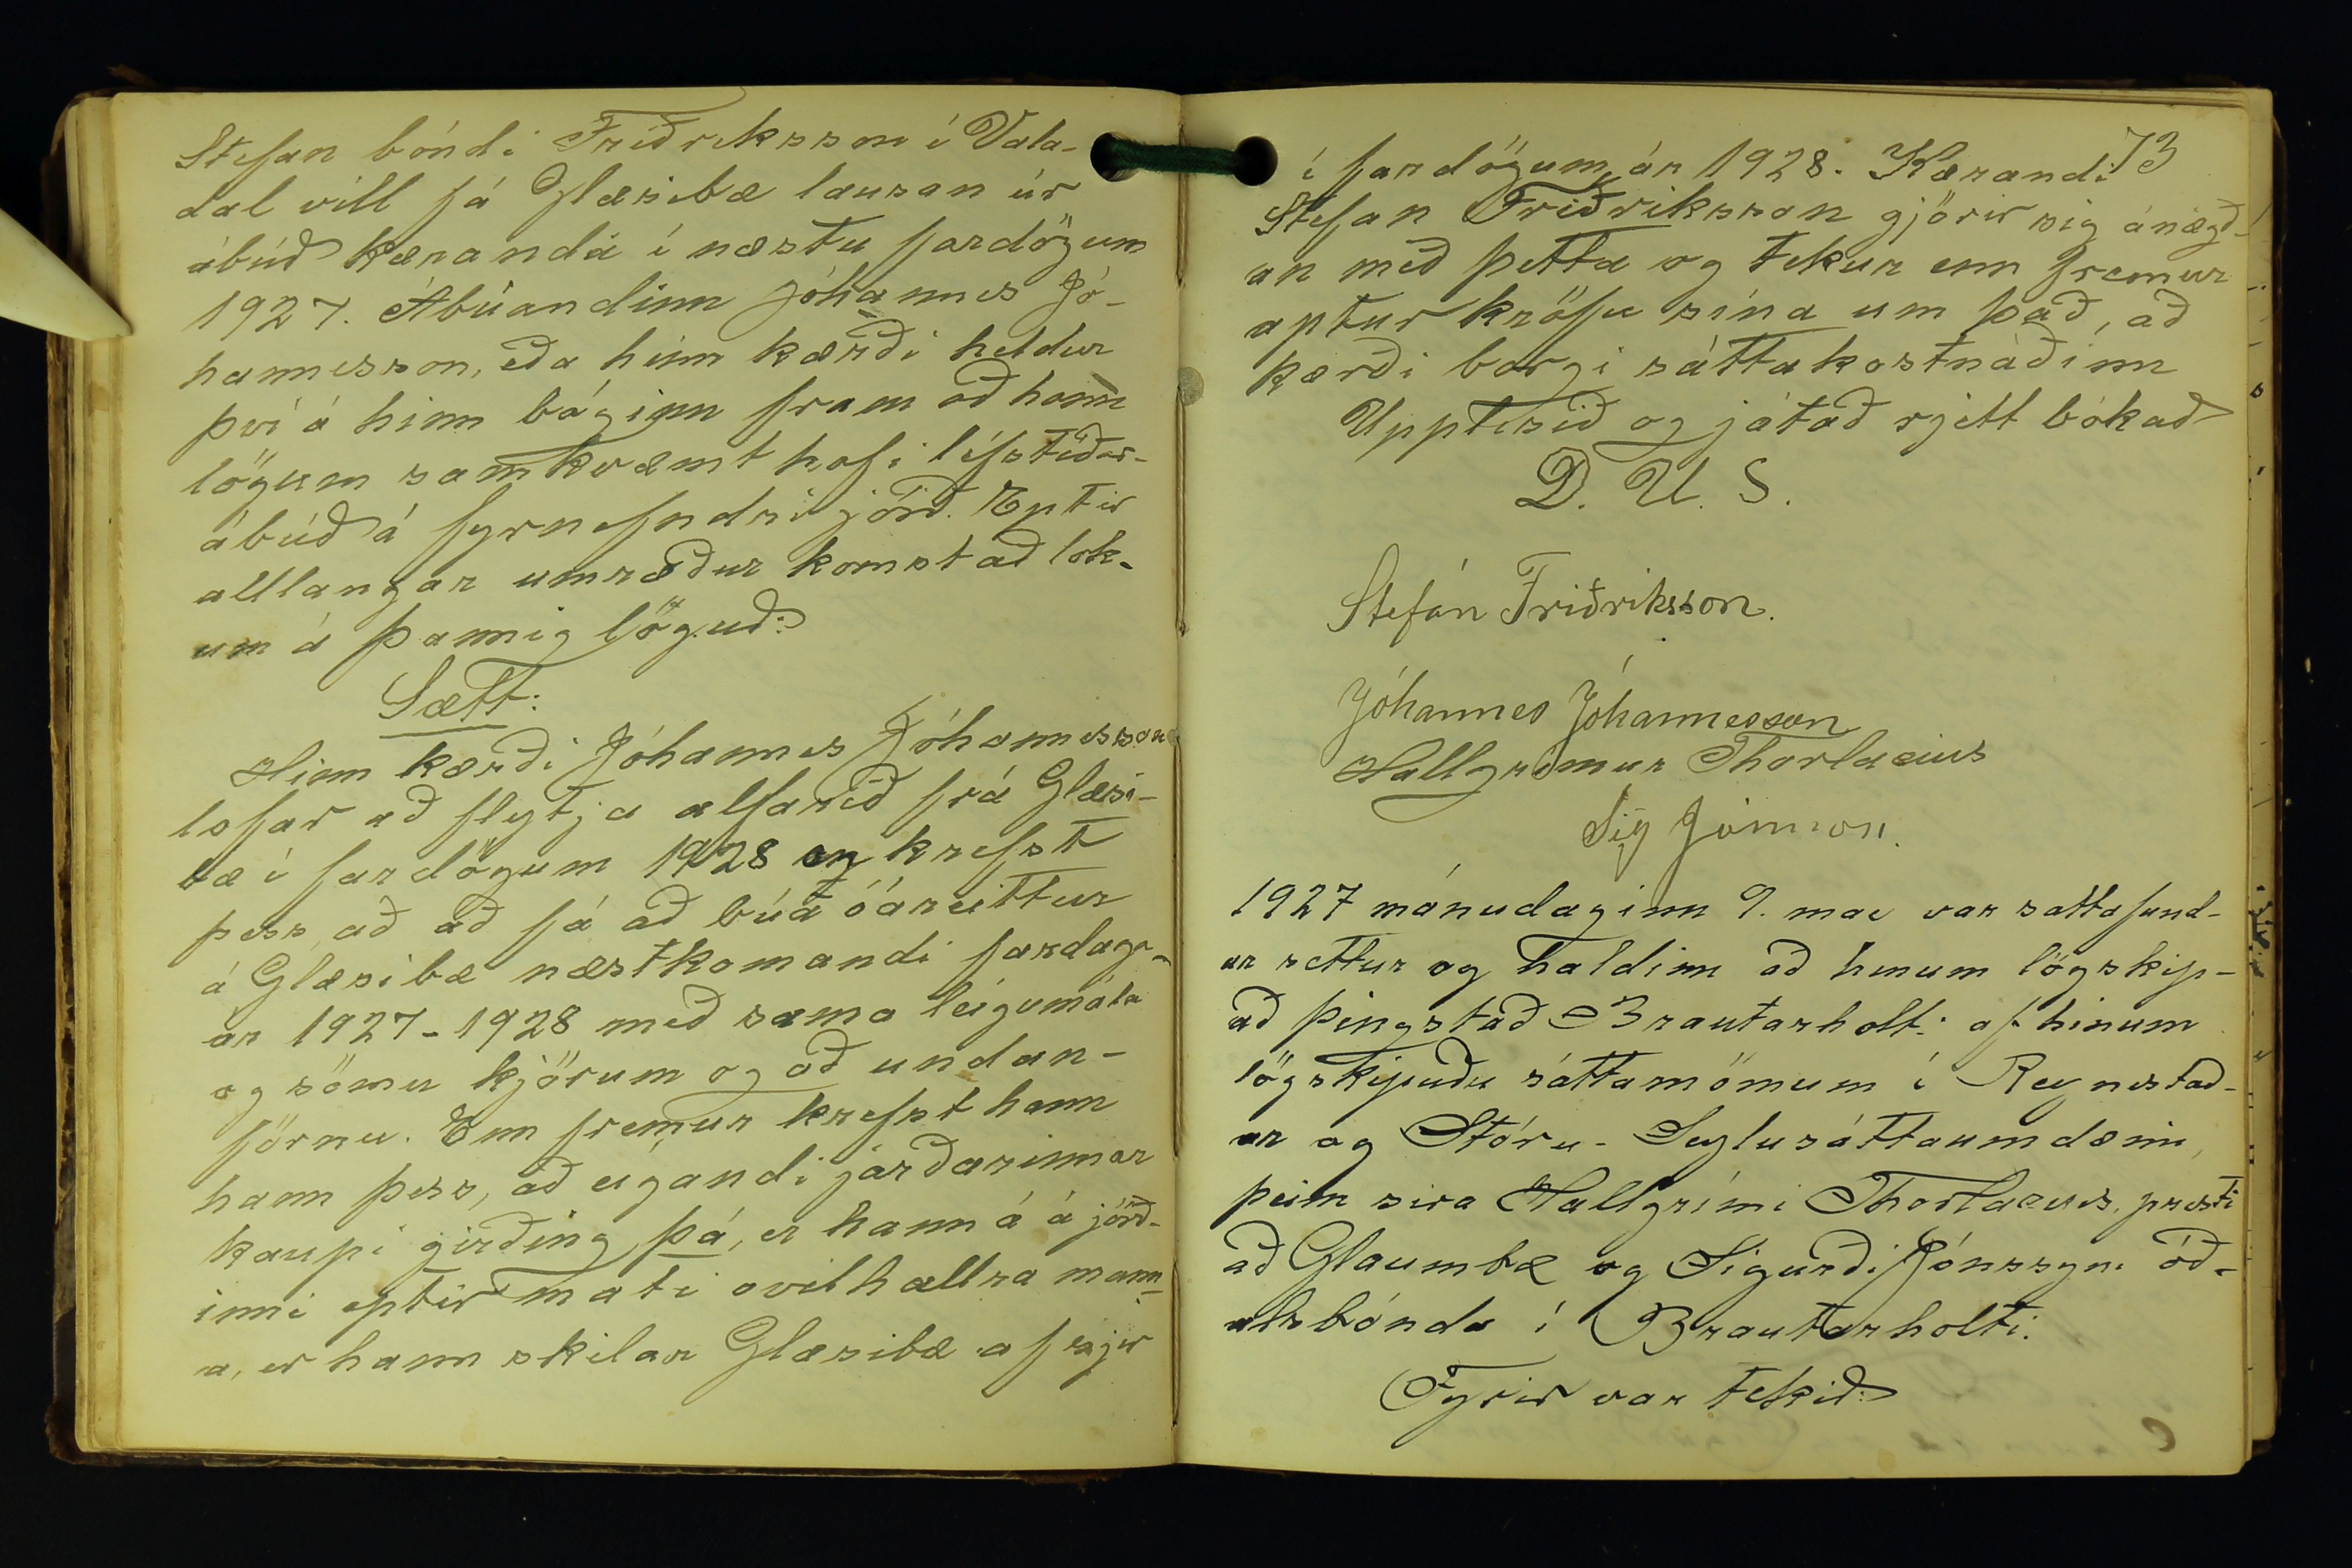 Stefan bóndi Friðriksson í Vala-
dal vill fá Glæsibæ lausan úr
ábúð kæranda í næstu fardögum
1927. Ábúandinn Jóhannes Jó-
hannesson, eða hinn kærði heldur
því á hinn bóginn fram að hann
lögum samkvæmt hafi lífstíðar-
ábúð á fyrnefndri jörð. Eptir
alllangar umræður komst að lok-
um á þannig löguð:
Sætt:
Hinn kærði Jóhannes Jóhannesson
lofar að flytja alfarið frá Glæsi-
bæ í fardögum 1928 og krefst
þess, að að fá að búa óáreittur
á Glæsibæ næstkomandi fardaga-
ár 1927-1928 með sama leigumála
og sömu kjörum og að undan-
förnu. Enn fremur krefst hann
hann þess, að eigandi jarðarinnar
kaupi girðing þá, er hann á á jörð-
inni eptir mati óvilhallra mann-
a, er hann skilar Glæsibæ af sjer
73
í fardögum ár 1928. Kærandi
Stefan Friðriksson gjörir sig ánægð-
an með þetta og tekur enn fremur
aptur kröfu sína um það, að
kærði borgi sáttakostnaðinn
Upplesið og játað rjett bókað
D. U. S.
Stefán Friðriksson.
Jóhannes Jóhannesson
Hallgrímur Thorlacius
Sig Jónsson.
1927 mánudaginn 9. mae var sáttafund-
ur settur og haldinn að hinum lögskip-
að þingstað Brautarholti af hinum
lögskipuðu sáttamönnum í Reynistað-
ar og Stóru-Seylusáttaumdæmi,
þeim sira Hallgrími Thorlacius, presti
að Glaumbæ og Sigurði Jónssyni óð-
alsbónda í Brautarholti.
Fyrir var tekið: